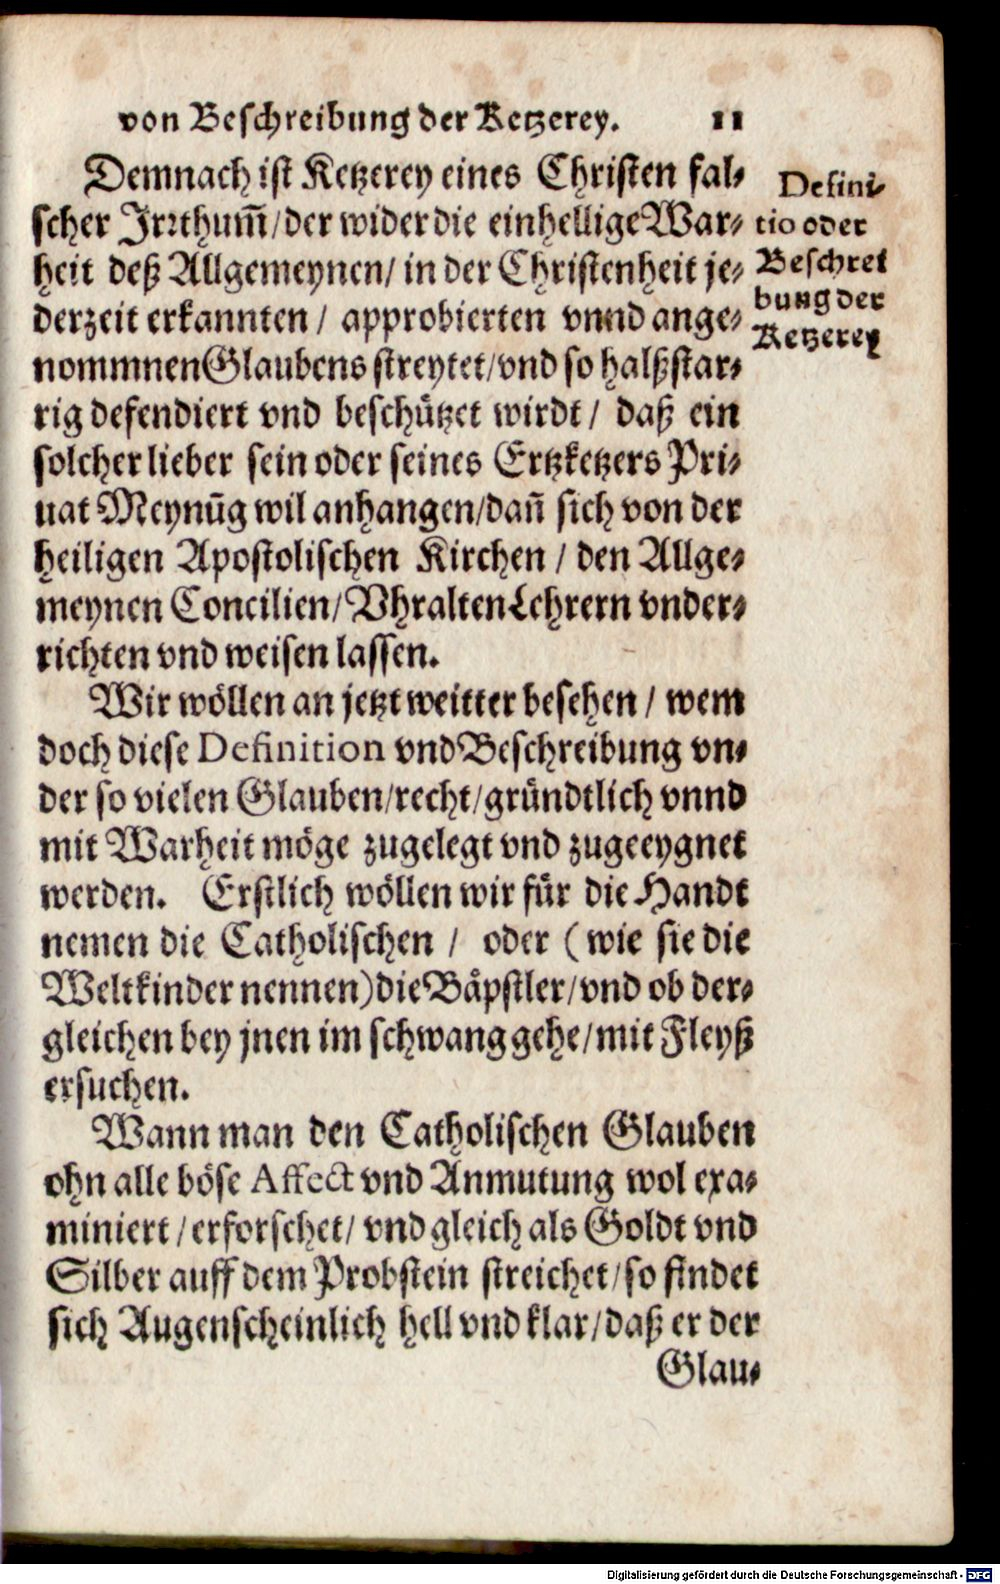 von Beschreibung der Ketzerey. 11
Demnach ist Ketzerey eines Christen fal-
scher Irrthum̃/der wider die einhellige War-
heit deß Allgemeynen/ in der Christenheit je-
derzeit erkannten / approbierten vnnd ange-
nommnen Glaubens streytet/vnd so halßstar-
rig defendiert vnd beschützet wirdt / daß ein
solcher lieber sein oder seines Ertzketzers Pri-
uat Meynūg wil anhangen/dañ sich von der
heiligen Apostolischen Kirchen / den Allge-
meynen Concilien/ Vhralten Lehrern vnder-
richten vnd weisen lassen.
Defini-
tio oder
Beschrei
bung der
Ketzerey
Wir wöllen an jetzt weitter besehen / wem
doch diese Definition vnd Beschreibung vn-
der so vielen Glauben/recht/gründtlich vnnd
mit Warheit möge zugelegt vnd zugeeygnet
werden. Erstlich wöllen wir für die Handt
nemen die Catholischen / oder (wie sie die
Weltkinder nennen) die Bäpstler/vnd ob der-
gleichen bey jnen im schwang gehe/mit Fleyß
ersuchen.
Wann man den Catholischen Glauben
ohn alle böse Affect vnd Anmutung wol exa-
miniert/erforschet/ vnd gleich als Goldt vnd
Silber auff dem Probstein streichet/so findet
sich Augenscheinlich hell vnd klar/daß er der
Glau-
Digitalisierung gefördert durch die Deutsche Forschungsgemeinschaft - DFG